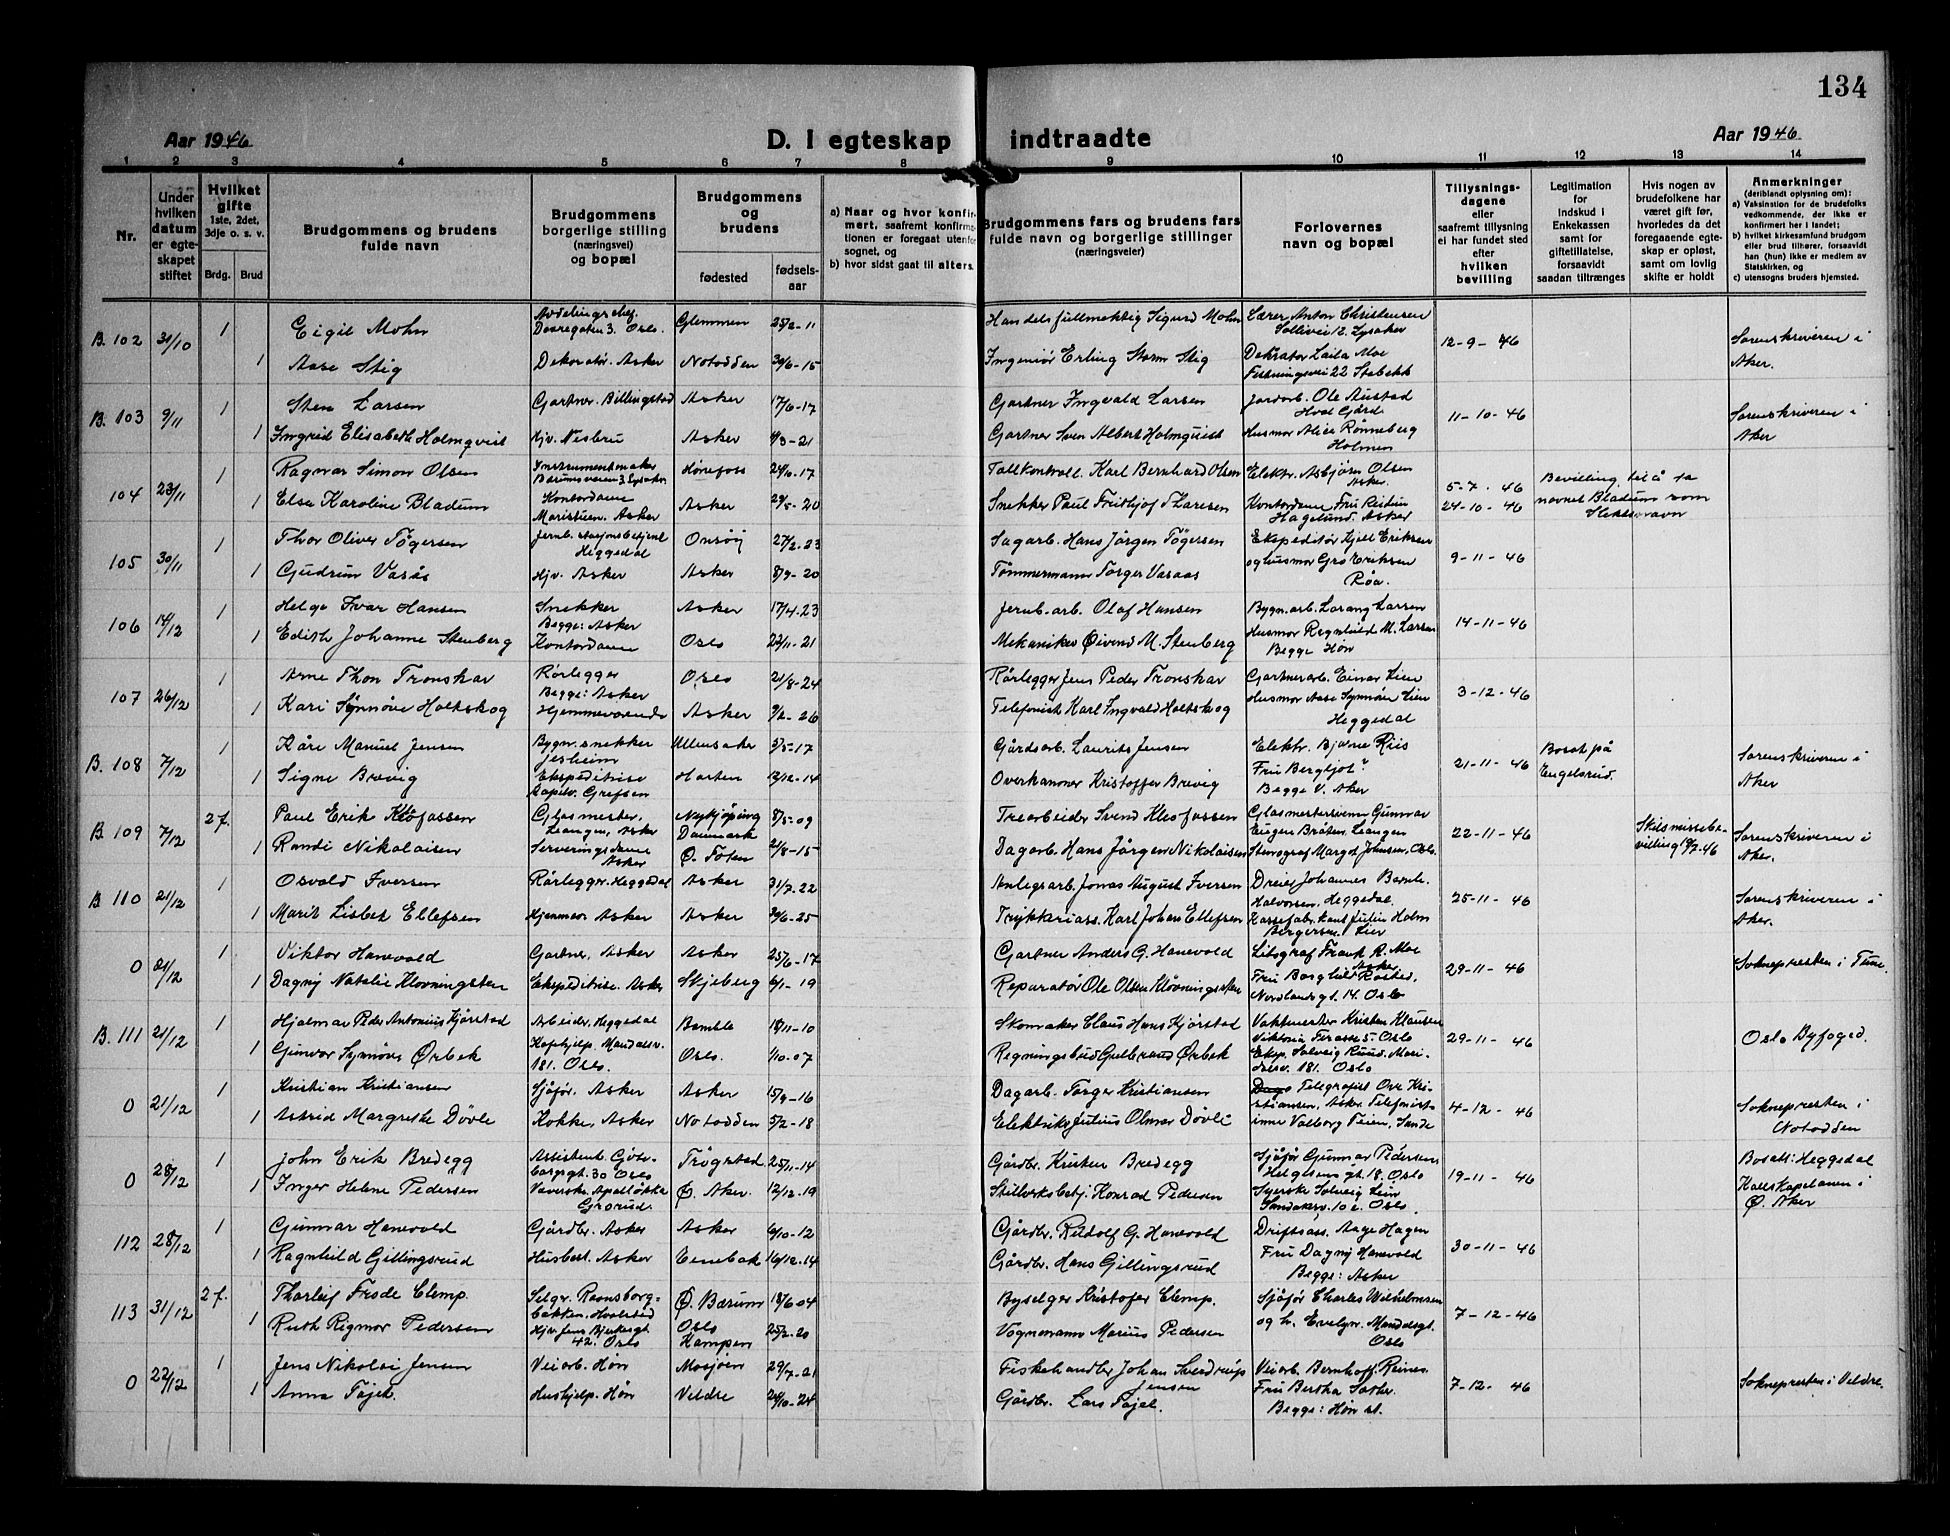 134
Aar 1946
D. I egteskap indtraadte
Aar 1946
1 2 3 4 5 6 7 8 9 10 11 12 13 14
Nr.
Under hvilken datum er egteskapet stiftet
Hvilket gifte 1ste, 2det, 3dje o. s. v.
Brdg. Brud
Brudgommens og brudens fulde navn
Brudgommens borgerlige stilling (næringsvei) og bopæl
Brudgommens og brudens
fødested
fødselsaar
a) Naar og hvor konfirmert, saafremt konfirmationen er foregaat utenfor sognet, og
b) hvor sidst gaat til alters.
Brudgommens fars og brudens fars fulde navn og borgerlige stillinger (næringsveier)
Forlovernes navn og bopæl
Tillysningsdagene eller saafremt tillysning ei har fundet sted efter hvilken bevilling
Legitimation for Indskud i Enkekassen samt for giftetillatelse, forsaavidt saadan tiltrænges
Hvis nogen av brudefolkene har været gift før, hvorledes da det foregaaende egteskap er opløst, samt om lovlig skifte er holdt
Anmerkninger (deriblandt oplysning om): a) Vaksination for de brudefolks vedkommende, der ikke er konfirmert her i landet; b) hvilket kirkesamfund brudgom eller brud tilhører, forsaavidt han (hun) ikke er medlem av Statskirken, og c) utensogns bruders hjemsted.
B. 102 31/10 1 Eigil Mohn Avdelingschef. Oslo. Glemmen 25/2-11 Handelsfullmektig Sigurd Mohn Lærer Anton Christensen Sollivei 12. Lysaker 12-9-46 Sorenskriveren i Aker.
1 Aase Stig Dekoratør. Asker Notodden 30/6-15 Ingeniør Erling Storm Stig Dekoratør Laila Moe 22 Stabekk
B. 103 9/11 1 Sten Larsen Gartner. Billingstad Asker 17/6-17 Gartner Ingvald Larsen Jordarb. Ole Austad Hval Gård 11-10-46 Sorenskriveren i Aker
1 Ingrid Elisabeth Holmqvist Hjv. Nesbru Asker 4/3-21 Gartner Sven Albert Holmquist Husmor Alice Rønneberg Holmen
104 23/11 1 Ragnar Simon Olsen Instrumentmaker Bærumsveien 3 Lysaker Hønefoss 24/10-17 Tollkontroll. Karl Bernhard Olsen Elektr. Asbjørn Olsen Asker. 5-7-46 Bevilling til å ta navnet Bladum som slektsnavn
1 Else Karoline Bladum Kontordame Maristuen. Asker Asker 29/5-20 Snekker Paul Fridthjof Larsen Kontordame Fru Reidun Hagelund. Asker 24-10-46
105 30/11 1 Thor Oliver Tøgersen Jernb. stasjonsbetjent Heggedal Onsøy 27/2-23 Sagarb. Hans Jørgen Tøgersen Ekspeditør Kjell Eriksen og husmor Gro Eriksen Røa. 9-11-46
1 Gudrun Vasås Hjv. Asker Asker 8/9-20 Tømmermann Torger Vasaas
106 14/12 1 Helge Ivar Hansen Snekker Begge: Asker Asker 17/4-23 Jernb. arb. Olaf Hansen Bygn. arb. Lorang Larsen 14-11-46
1 Edith Johanne Stenberg Kontordame Oslo 22/11-21 Mekaniker Øivend M. Stenberg Husmor Ragnhild M. Larsen Begge Høn
107 26/12 1 Arne Thon Tronskar Rørlegger Begge: Asker Oslo 21/8-24 Rørlegger Jens Peder Tronskar Gartnerarb. Einar Lien 3-12-46
1 Kari Synnøve Holtskog Hjemmeværende Asker 9/2-26 Telefonist Karl Ingvald Holtskog Husmor Aase Synnøve Lien Heggedal
B. 108 7/12 1 Kåre Manuel Jensen Bygn. snekker Jesheim Ullensaker 3/5-17 Gårdsarb. Laurits Jensen Elektr. Bjarne Riis 21-11-46 Bosat på Engelsrud. Sorenskriveren i Aker
1 Signe Brevig Ekspeditrise Grefsen Horten 13/12-14 Overkanoner Kristoffer Brevig Fru Bergljot " Begge V. Aker
B. 109 7/12 2 f. Paul Erik Kleofassen Glasmester, Leangen, Asker Nykjøping Danmark 8/5-09 Trearbeider Svend Kleofassen Glasmestersvenn Gunnar Eugen Bråten, Leangen 22-11-46 Skilsmissebevilling 19/7-46 Sorenskriveren i Aker.
1 Randi Nikolaisen Serveringsdame Asker Ø. Toten 21/8-15 Dagarb. Hans Jørgen Nikolaisen Stenograf Margot Johnsen, Oslo.
B 110 21/12 1 Osvald Iversen Rørlegger. Heggedal Asker 31/7-22 Anlegsarb. Jonas August Iversen Dreier Johannes Halvorsen, Heggedal. 25-11-46 Sorenskriveren i Aker.
1 Marit Lisbet Ellefsen Hjemmev. Asker Asker 30/6-25 Trykkeriass. Karl Johan Ellefsen Kassefabrikant Julin Holm Bergersen. Lier
0 21/12 1 Viktor Hanevold Gartner, Asker Asker 25/6-17 Gartner Anders G. Hanevold Litograf Frank R. Moe Asker 29-11-46 Soknepresten i Tune.
1 Dagny Natalie Kløvningsten Ekspeditrise. Asker Skjeberg 6/1-19 Reparatør Ole Olsen Kløvningsten Fru Borghild Røsted, Nordlandsgt. 14. Oslo
B. 111 21/12 1 Hjalmar Peder Antonius Kjørstad Arbeider, Heggedal Bamble 18/11-10 Skomaker Claus Hans Kjørstad Vaktmester Kristen Klausen Viktoria Terasse 5. Oslo 29-11-46 Oslo Byfoged.
1 Gunvor Synnøve Ørbek 181. Oslo. Oslo. 1/10-07 Regningsbud Gulbrand Ørbek Eksp. Solveig Ruud. Maridalsv. 181. Oslo
0 21/12 1 Kristian Kristiansen Sjåfør. Asker Asker 15/9-16 Dagarb. Torger Kristiansen Telegrafist Ove Kristiansen, Asker. 4-12-46 Soknepresten i Notodden
1 Astrid Margrethe Døvle Kokke, Asker Notodden 5/2-18 Elektriker Julius Olmar Døvle Telefonistinne Valborg Teien, Sande
0 28/12 1 John Erik Bredegg Assistent. Gøteborgsgt. 30 Oslo Trøgstad 25/11-14 Gårdbr. Kristen Bredegg Sjåfør Gunnar Pedersen Helgesensgt. 18. Oslo 19-11-46 Bosatt: Heggedal
1 Inger Helene Pedersen Veverske. Apalløkka Grorud. Ø. Aker. 12/12-19 Stillverksbetj. Konrad Pedersen Syerske Solveig Lien Sandakerv. 10 c. Oslo. Kallskapelanen i Ø. Aker
112 28/12 1 Gunnar Hanevold Gårdbr. Asker Asker 6/10-12 Gårdbr. Rudolf G. Hanevold Driftsass. Aage Hagen 30-11-46
1 Ragnhild Gillingsrud Husbest. Asker Enebak 16/12-14 Gårdbr. Hans Gillingsrud Fru Dagny Hanevold Begge: Asker
113 31/12 2 f. Thorleif Frode Clemp. Selgr. Ramsborgbakken. Hvalstad Ø. Bærum 18/6 04 Byselger Kristofer Clemp. Sjåfør Charles Wilhelmsen 7-12-46
1 Ruth Rigmor Pedersen Hjv. Jens Bjelkesgt. 42. Oslo Oslo Kampen 25/2-20 Vognmann Marius Pedersen og h. Evelyn. Mandalsgt. Oslo
0 22/12 1 Jens Nikolai Jensen Veiarb. Høn Mosjøen 29/7-21 Fiskehandler Johan Sverdrup Jensen Veiarb. Bernhoff Reines 7-12-46 Soknepresten i Veldre.
1 Anna Tajet. Hushjelp. Høn Veldre 24/10-24 Gårdbr. Lars Tajet. Fru Bertha Sæther. Begge: Høn st.